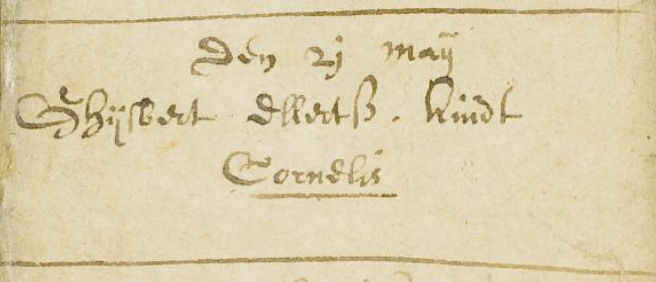 den 21 maij
Ghijsbert Ellertß. kindt
Cornelis